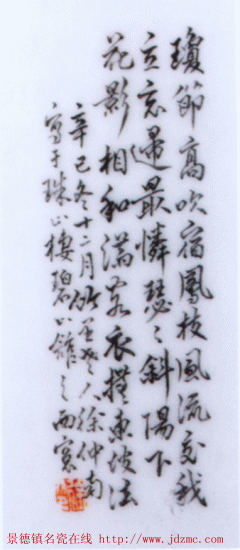 瓊節高吹宿鳳枝風流交我
立忘歸最憐瑟々斜陽下
花影相和滿客衣擬東坡法
辛巳冬十二月竹里老人徐仲南
寫于珠山棲碧山館之西窗
景德镇名瓷在线 http://www.jdzmc.com